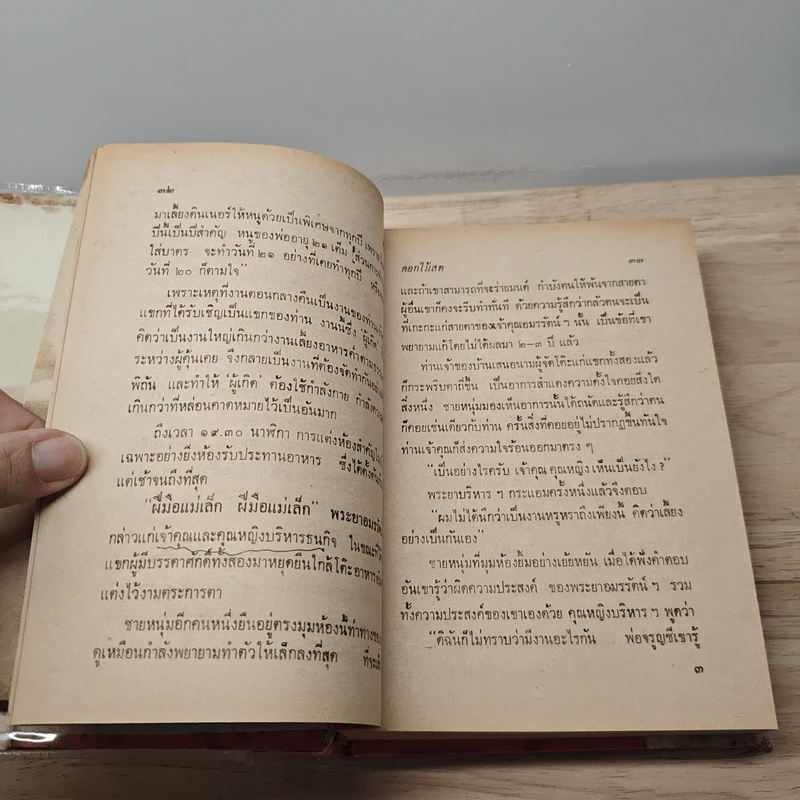 ๓๒
มาเลี้ยงดินเนอร์ให้หนูด้วยเป็นพิเศษจากทุกปี เพราะ
ปีนี้เป็นปีสำคัญ หนูของพ่ออายุ ๒๑ เต็ม ส่วนการ
ใส่บาตร จะทำวันที่ ๒๑ อย่างที่เคยทำทุกปี หรือ
วันที่ ๒๐ ก็ตามใจ”
เพราะเหตุที่งานตอนกลางคืนเป็นงานของท่าน
แขกที่ได้รับเชิญเป็นแขกของท่าน งานนี้ซึ่ง ‘ผู้เกิด’
คิดว่าเป็นงานใหญ่เกินกว่างานเลี้ยงอาหารค่ำตามธรรม
ระหว่างผู้คุ้นเคย จึงกลายเป็นงานที่ต้องจัดทำกันอย่าง
พิถัน และทำให้ ‘ผู้เกิด’ ต้องใช้กำลังกาย กำลังความ
เกินกว่าที่หล่อนคาดหมายไว้เป็นอันมาก
ถึงเวลา ๑๙.๓๐ นาฬิกา การแต่งห้องสำคัญ
เฉพาะอย่างยิ่งห้องรับประทานอาหาร ซึ่งได้ตั้งต้น
แต่เช้าจนถึงที่สุด
“ฝีมือแม่เล็ก ฝีมือแม่เล็ก” พระยาอมรรัตน์
กล่าวแก่เจ้าคุณและคุณหญิงบริหารธนกิจ ในขณะที่
แขกผู้มีบรรดาศักดิ์ทั้งสองมาหยุดยืนใกล้โต๊ะอาหาร
แต่งไว้งามตระการตา
ชายหนุ่มอีกคนหนึ่งยืนอยู่ตรงมุมห้องนี้ท่าทาง
ดูเหมือนกำลังพยายามทำตัวให้เล็กลงที่สุด ที่จะ
ดอกไม้สด
๓๓
และถ้าเขาสามารถที่จะร่ายมนต์ กำบังตนให้พ้นจากสายตา
ผู้อื่นเขาก็คงจะรีบทำทันที ด้วยความรู้สึกว่ากลัวตนจะเป็น
ที่เกะกะแก่สายตาของเจ้าคุณอมรรัตน์ ฯ นั้น เป็นข้อที่เขา
พยายามแก้โดยไม่ได้ผลมา ๒–๓ ปี แล้ว
ท่านเจ้าของบ้านเสนอนามผู้จัดโต๊ะแก่แขกทั้งสองแล้ว
ก็กระพริบตาถี่ขึ้น เป็นอาการสำแดงความตั้งใจคอยสิ่งใด
สิ่งหนึ่ง ชายหนุ่มมองเห็นอาการนั้นได้ถนัดและรู้สึกว่าตน
ก็คอยเช่นเดียวกับท่าน ครั้นสิ่งที่คอยอยู่ไม่ปรากฏขึ้นทันใจ
ท่านเจ้าคุณก็ส่งความใจร้อนออกมาตรง ๆ
“เป็นอย่างไรครับ เจ้าคุณ คุณหญิง เห็นเป็นยังไง ?”
พระยาบริหาร ฯ กระแอมครั้งหนึ่งแล้วจึงตอบ
“ผมไม่ได้นึกว่าเป็นงานหรูหราถึงเพียงนี้ คิดว่าเลี้ยง
อย่างเป็นกันเอง”
ชายหนุ่มที่มุมห้องยิ้มอย่างเย้ยหยัน เมื่อได้ฟังคำตอบ
อันเขารู้ว่าผิดความประสงค์ ของพระยาอมรรัตน์ ฯ รวม
ทั้งความประสงค์ของเขาเองด้วย คุณหญิงบริหาร ฯ พูดว่า
“ดิฉันก็ไม่ทราบว่ามีงานอะไรกัน พ่อจรูญซีเขารู้
๓